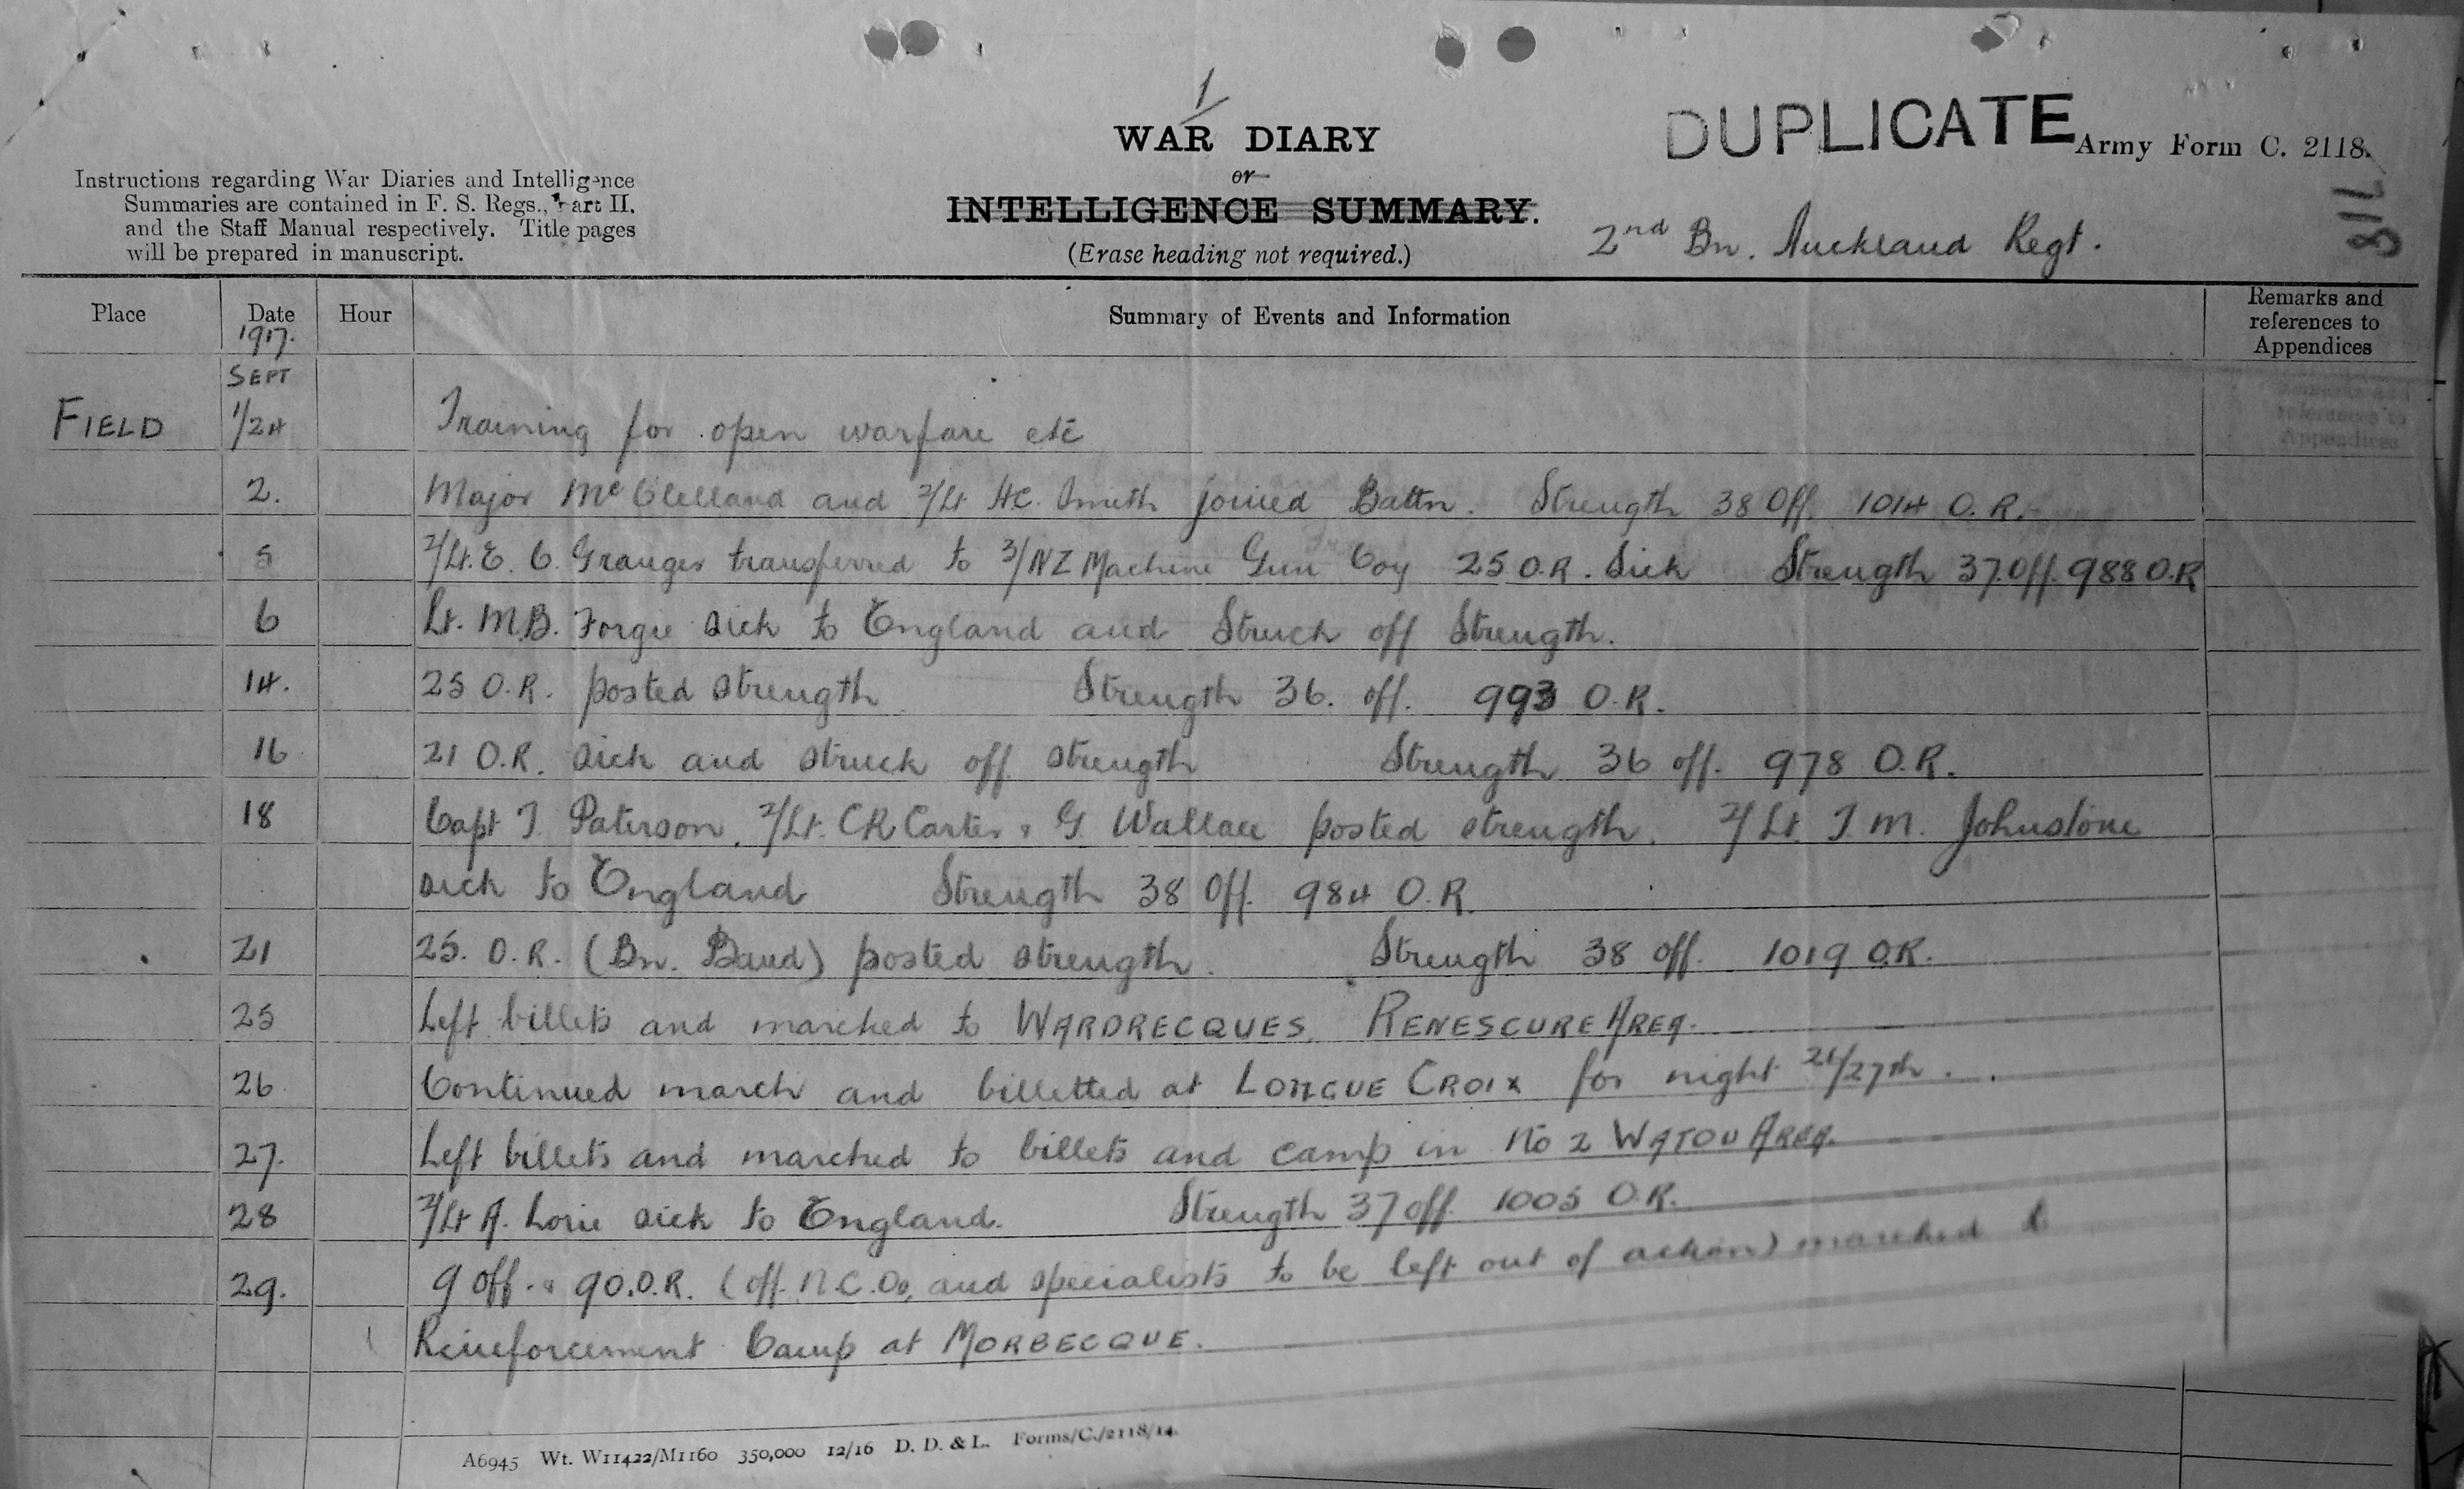 1
WAR DIARY
or
INTELLIGENCE SUMMARY.
(Erase heading not required.)
DUPLICATE
Army Form C. 2118.
Instructions regarding War Diaries and Intelligence
Summaries are contained in F. S. Regs., Part II.
and the Staff Manual respectively. Title pages
will be prepared in manuscript.
2nd Bn. Auckland Regt.
Place Date Hour Summary of Events and Information Remarks and references to Appendices
1917.
SEPT
FIELD 1/24 Training for open warfare etc
2. Major McClelland and 2/Lt H.C. Smith joined Battn. Strength 38 Off. 1014 O.R.
5 2/Lt. E. C. Granger transferred to 3/NZ Machine Gun Coy 25 O.R. Sick Strength 37. Off. 988 O.R
6 Lt. M.B. Forgie sick to England and Struck off Strength.
14. 25 O.R. posted strength Strength 36. off. 993 O.R.
16 21 O.R. sick and struck off strength Strength 36 off. 978 O.R.
18 Capt T. Paterson, 2/Lt. CR Carter & G Wallace posted strength. 2/Lt. T. M. Johnstone
sick to England Strength 38 Off. 984 O.R.
21 25. O.R. (Bn. Band) posted strength. Strength 38 off. 1019 O.R.
25 Left billets and marched to WARDRECQUES, RENESCURE AREA.
26 Continued march and billetted at LONGUE CROIX for night 26/27th.
27. Left billets and marched to billets and camp in No 2 WATOU AREA.
28 2/Lt A. Lorie sick to England. Strength 37 off. 1005 O.R.
29. 9 off. & 90. O.R. (off. N.C.Os, and specialists to be left out of action) marched to
Reinforcement Camp at MORBECQUE.
A6945 Wt. W11422/M1160 350,000 12/16 D. D. & L. Forms/C./2118/14.